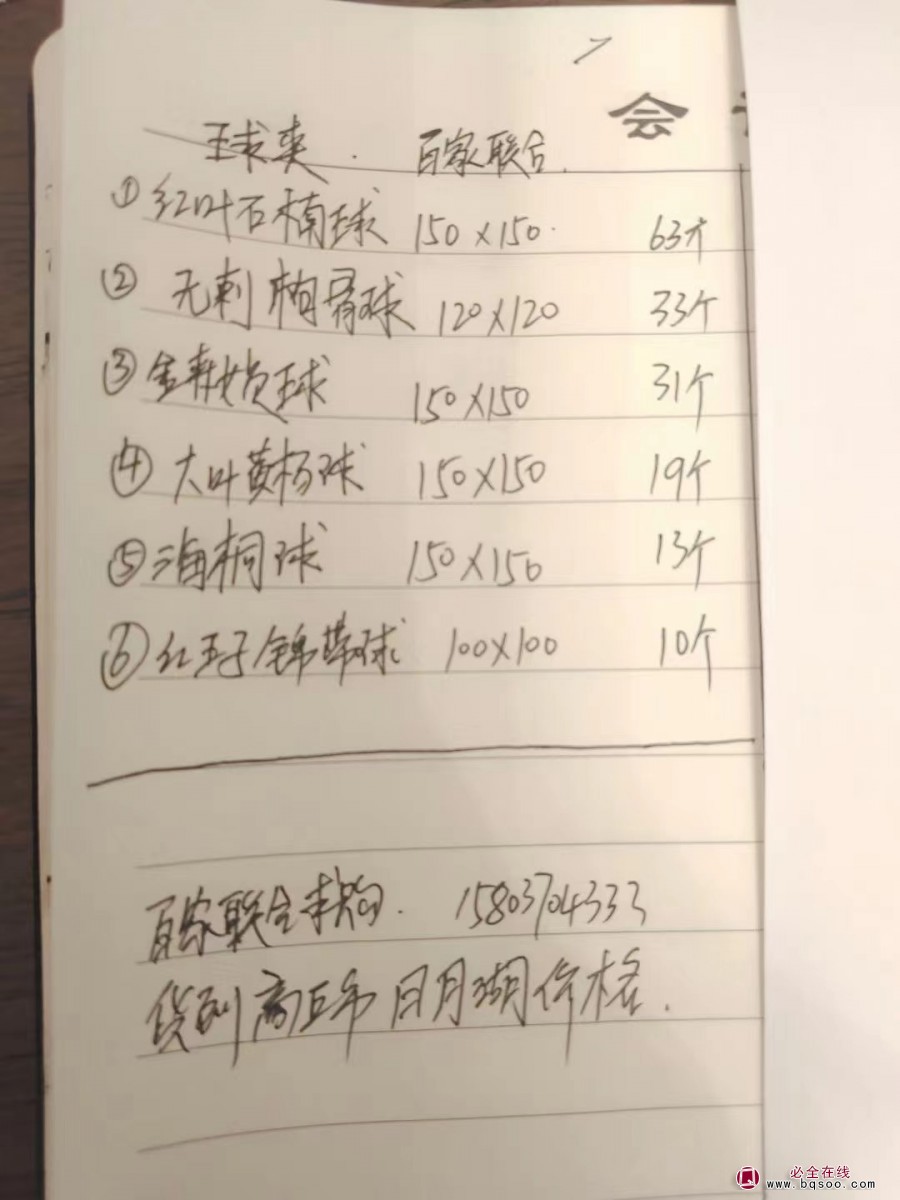 会
球类. 百家联合.
①红叶石楠球 150×150. 63个
②无刺构骨球 120×120 33个
③金森女贞球 150×150 31个
④大叶黄杨球 150×150 19个
⑤海桐球 150×150 13个
⑥红王子锦带球 100×100 10个
百家联合求购. 15803704333
货到商丘市日月湖价格.
必全在线
www.bqsoo.com